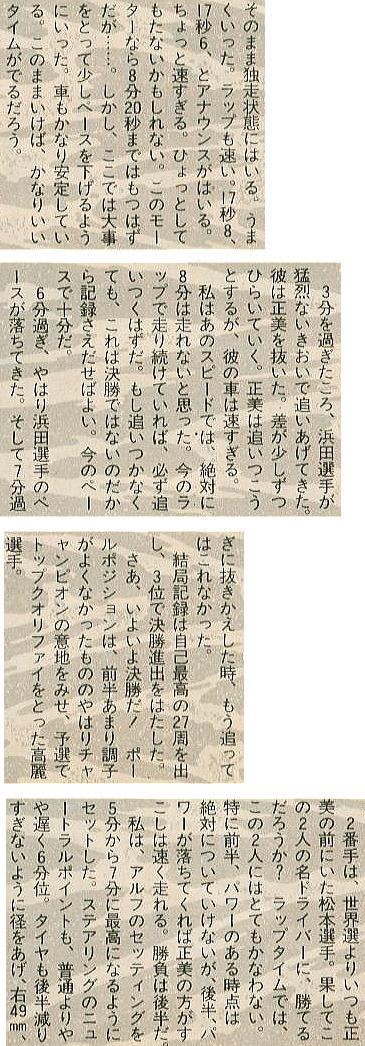 そのまま独走状態にはいる。うま
くいった。ラップも速い。17秒8、
17秒6、とアナウンスがはいる。
ちょっと速すぎる。ひょっとして
もたないかもしれない。このモー
ターなら8分20秒まではもつはず
だが……。しかし、ここでは大事
をとって少しペースを下げるよう
にいった。車もかなり安定してい
る。このままいけば、かなりいい
タイムがでるだろう。
3分を過ぎたころ、浜田選手が
猛烈ないきおいで追いあげてきた。
彼は正美を抜いた。差が少しずつ
ひらいていく。正美は追いつこう
とするが、彼の車は速すぎる。
私はあのスピードでは、絶対に
8分は走れないと思った。今のラ
ップで走り続けていれば、必ず追
いつくはずだ。もし追いつかなく
ても、これは決勝ではないのだか
ら記録さえだせばよい。今のペー
スで十分だ。
6分過ぎ、やはり浜田選手のペ
ースが落ちてきた。そして7分過
ぎに抜きかえした時、もう追って
はこれなかった。
結局記録は自己最高の27周を出
し、3位で決勝進出をはたした。
さあ、いよいよ決勝だ! ポー
ルポジションは、前半あまり調子
がよくなかったもののやはりチャ
ャンピオンの意地をみせ、予選で
トップクオリファイをとった高麗
選手。
2番手は、世界選よりいつも正
美の前にいた松本選手。果してこ
の2人の名ドライバーに、勝てる
だろうか? ラップタイムでは、
この2人にはとてもかなわない。
特に前半、パワーのある時点は
絶対についていけないが、後半、パ
ワーが落ちてくれば正美の方がす
こしは速く走れる。勝負は後半だ。
私は、アルフのセッティングを
5分から7分に最高になるように
セットした。ステアリングのニュ
ートラルポイントも、普通よりや
や遅く6分位。タイヤも後半減り
すぎないように径をあげ、右49mm、